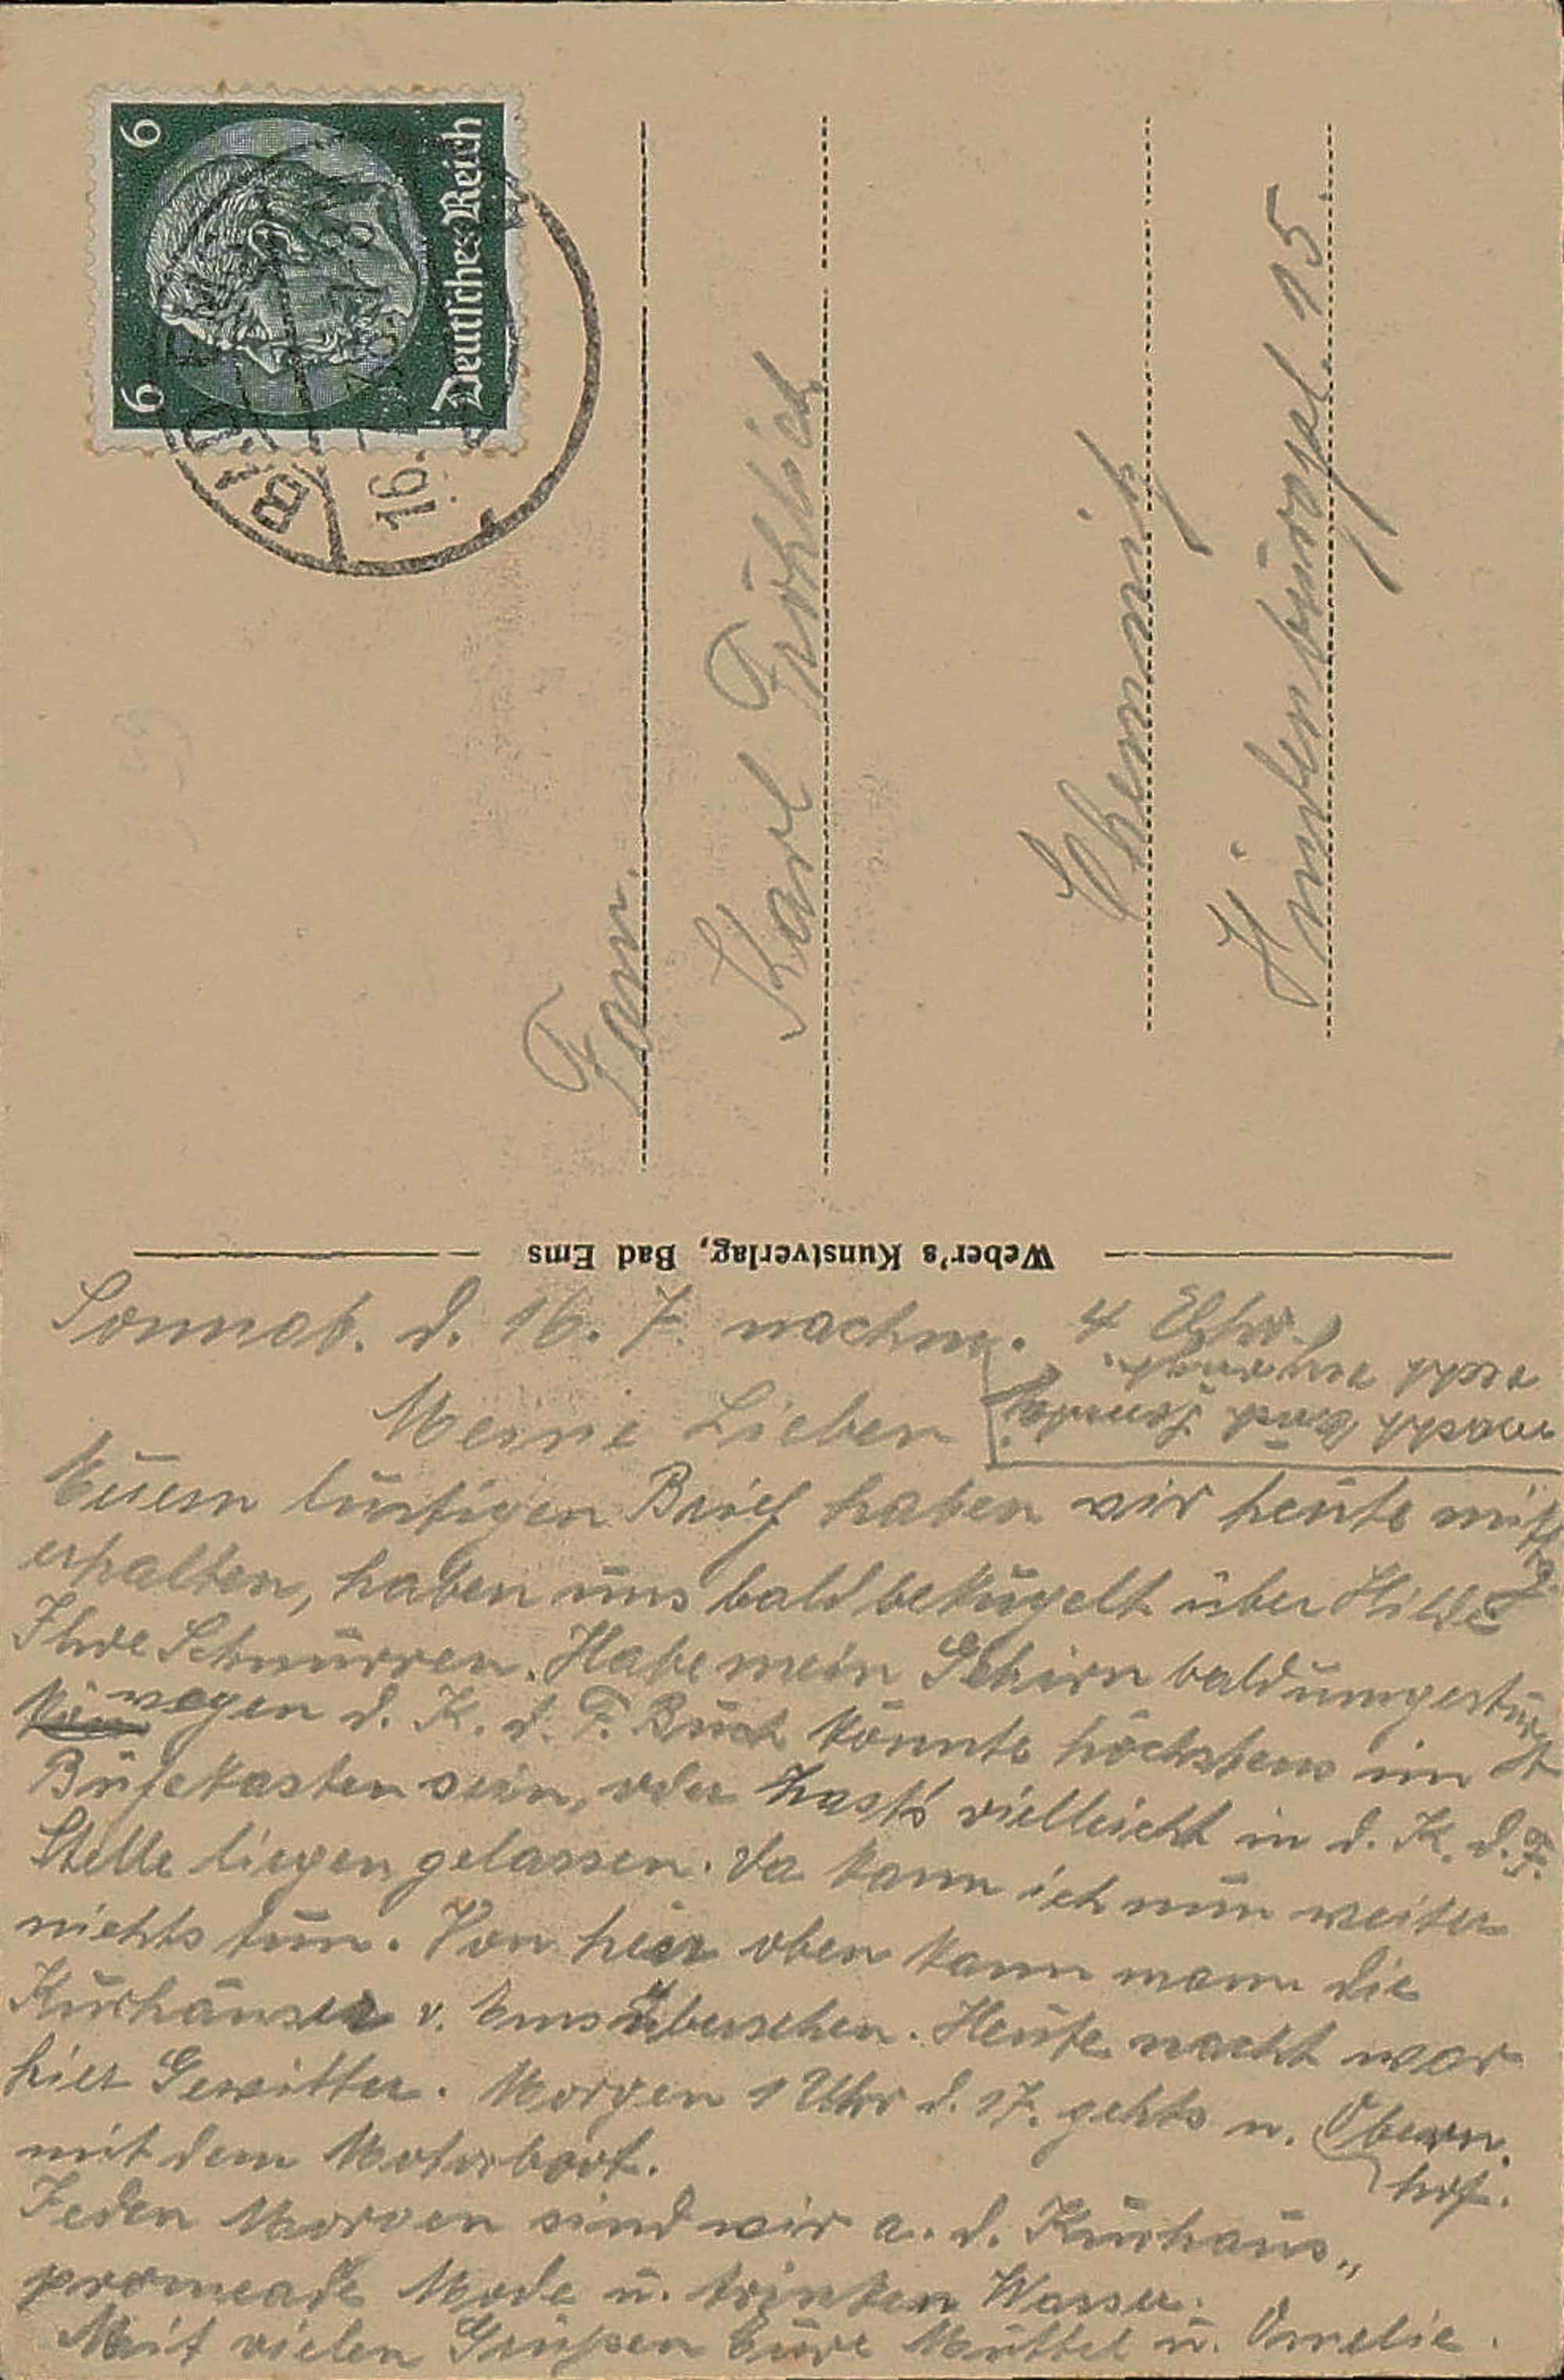 6
6
Deutsches Reich
BAD EMS
16.7.38
Fam.
Karl Fröhlich
Chemnitz
Hinden bürgst. 15.
Weber's Kunstverlag, Bad Ems
Sonnab. d. 16. 7. nachm. 4 Uhr.
Meine Lieben
macht Euch Sonntag
recht
Euern lustigen Brief haben wir heute mittg.
erhalten, haben uns bald bekugelt über Hilde
Ihre Schnurren. Habe mein Gehirn bald umgestürzt
wegen d. K. d. F. Buch könnte höchstens im
Büfekasten sein, oder hast's vielleicht in d. K. d. F.
Stelle liegen gelassen. Da kann ich nun weiter
nichts tun. Von hier oben kann mann die
Kurhäuser v. Ems übersehen. Heute nacht war
hier Gewitter. Morgen 1 Uhr d. 17. gehts n. Obern.
hof.
mit dem Motorboot.
Jeden Morgen sind wir a. d. Kurhaus„
promeade Mode u. trinken Wasser.
Mit vielen Grüßen Eure Muttel u. Omelie.